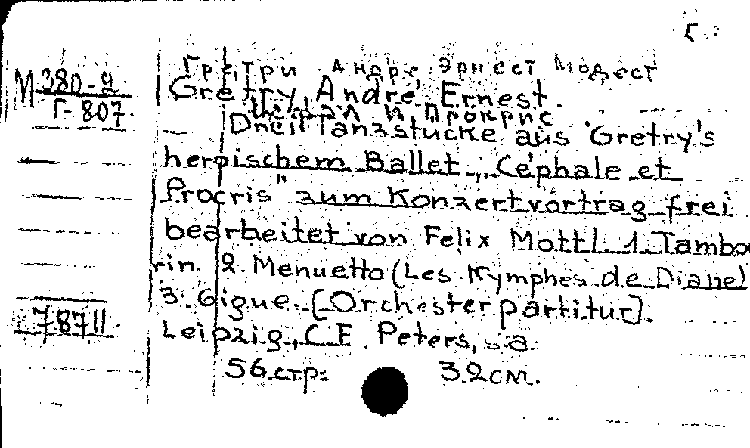 Г
Гретри Андре Эрнест Модест
М 380-2
Г-807
Gretry, André Ernest.
Цефал и Прокрис
Drei Tanzstücke aus Gretry's
heroischem Ballet „Céphale et
Procris" zum Konzertvortrag frei
bearbeitet von Felix Mottl. 1. Tambo
rin. 2. Menuetto (Les Nymphes de Diane)
3. Gigue. [Orchesterpartitur].
78711
Leipzig, C.F. Peters, s.a.
56 стр. 32 см.